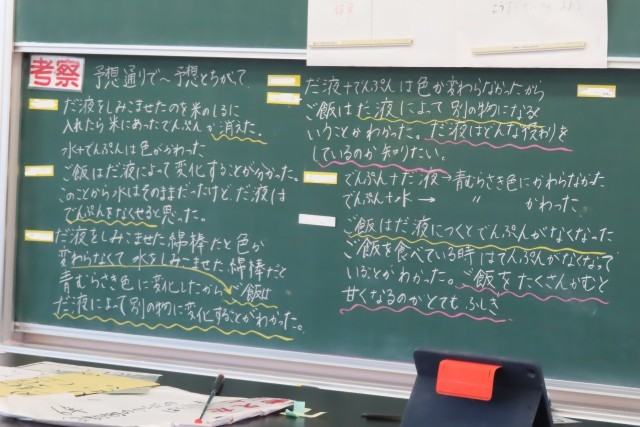 考察
予想通りで～予想とちがて
だ液をしみこませたのを米のしるに
入れたら米にあったでんぷんが消えた。
水+でんぷんは色がかわった
ご飯はだ液によって変化することが分かった。
このことから水はそのままだったけど、だ液は
でんぷんをなくせると思った。
だ液をしみこませた綿棒だと色が
変わらなくて水をしみこませた綿棒だと
青むらさき色に変化したからご飯は
だ液によって別の物に変化することがわかった。
だ液+でんぷんは色が変わらなかったから
ご飯はだ液によって別の物になると
いうことがわかった。だ液はどんな役わりを
しているのか知りたい。
でんぷん+だ液→青むらさき色にかわらなかった
でんぷん+水→ 〃 かわった
ご飯はだ液につくとでんぷんがなくなった
ご飯を食べている時はでんぷんがなくなって
いることがわかった。ご飯をたくさんかむと
甘くなるのがとてもふしぎ